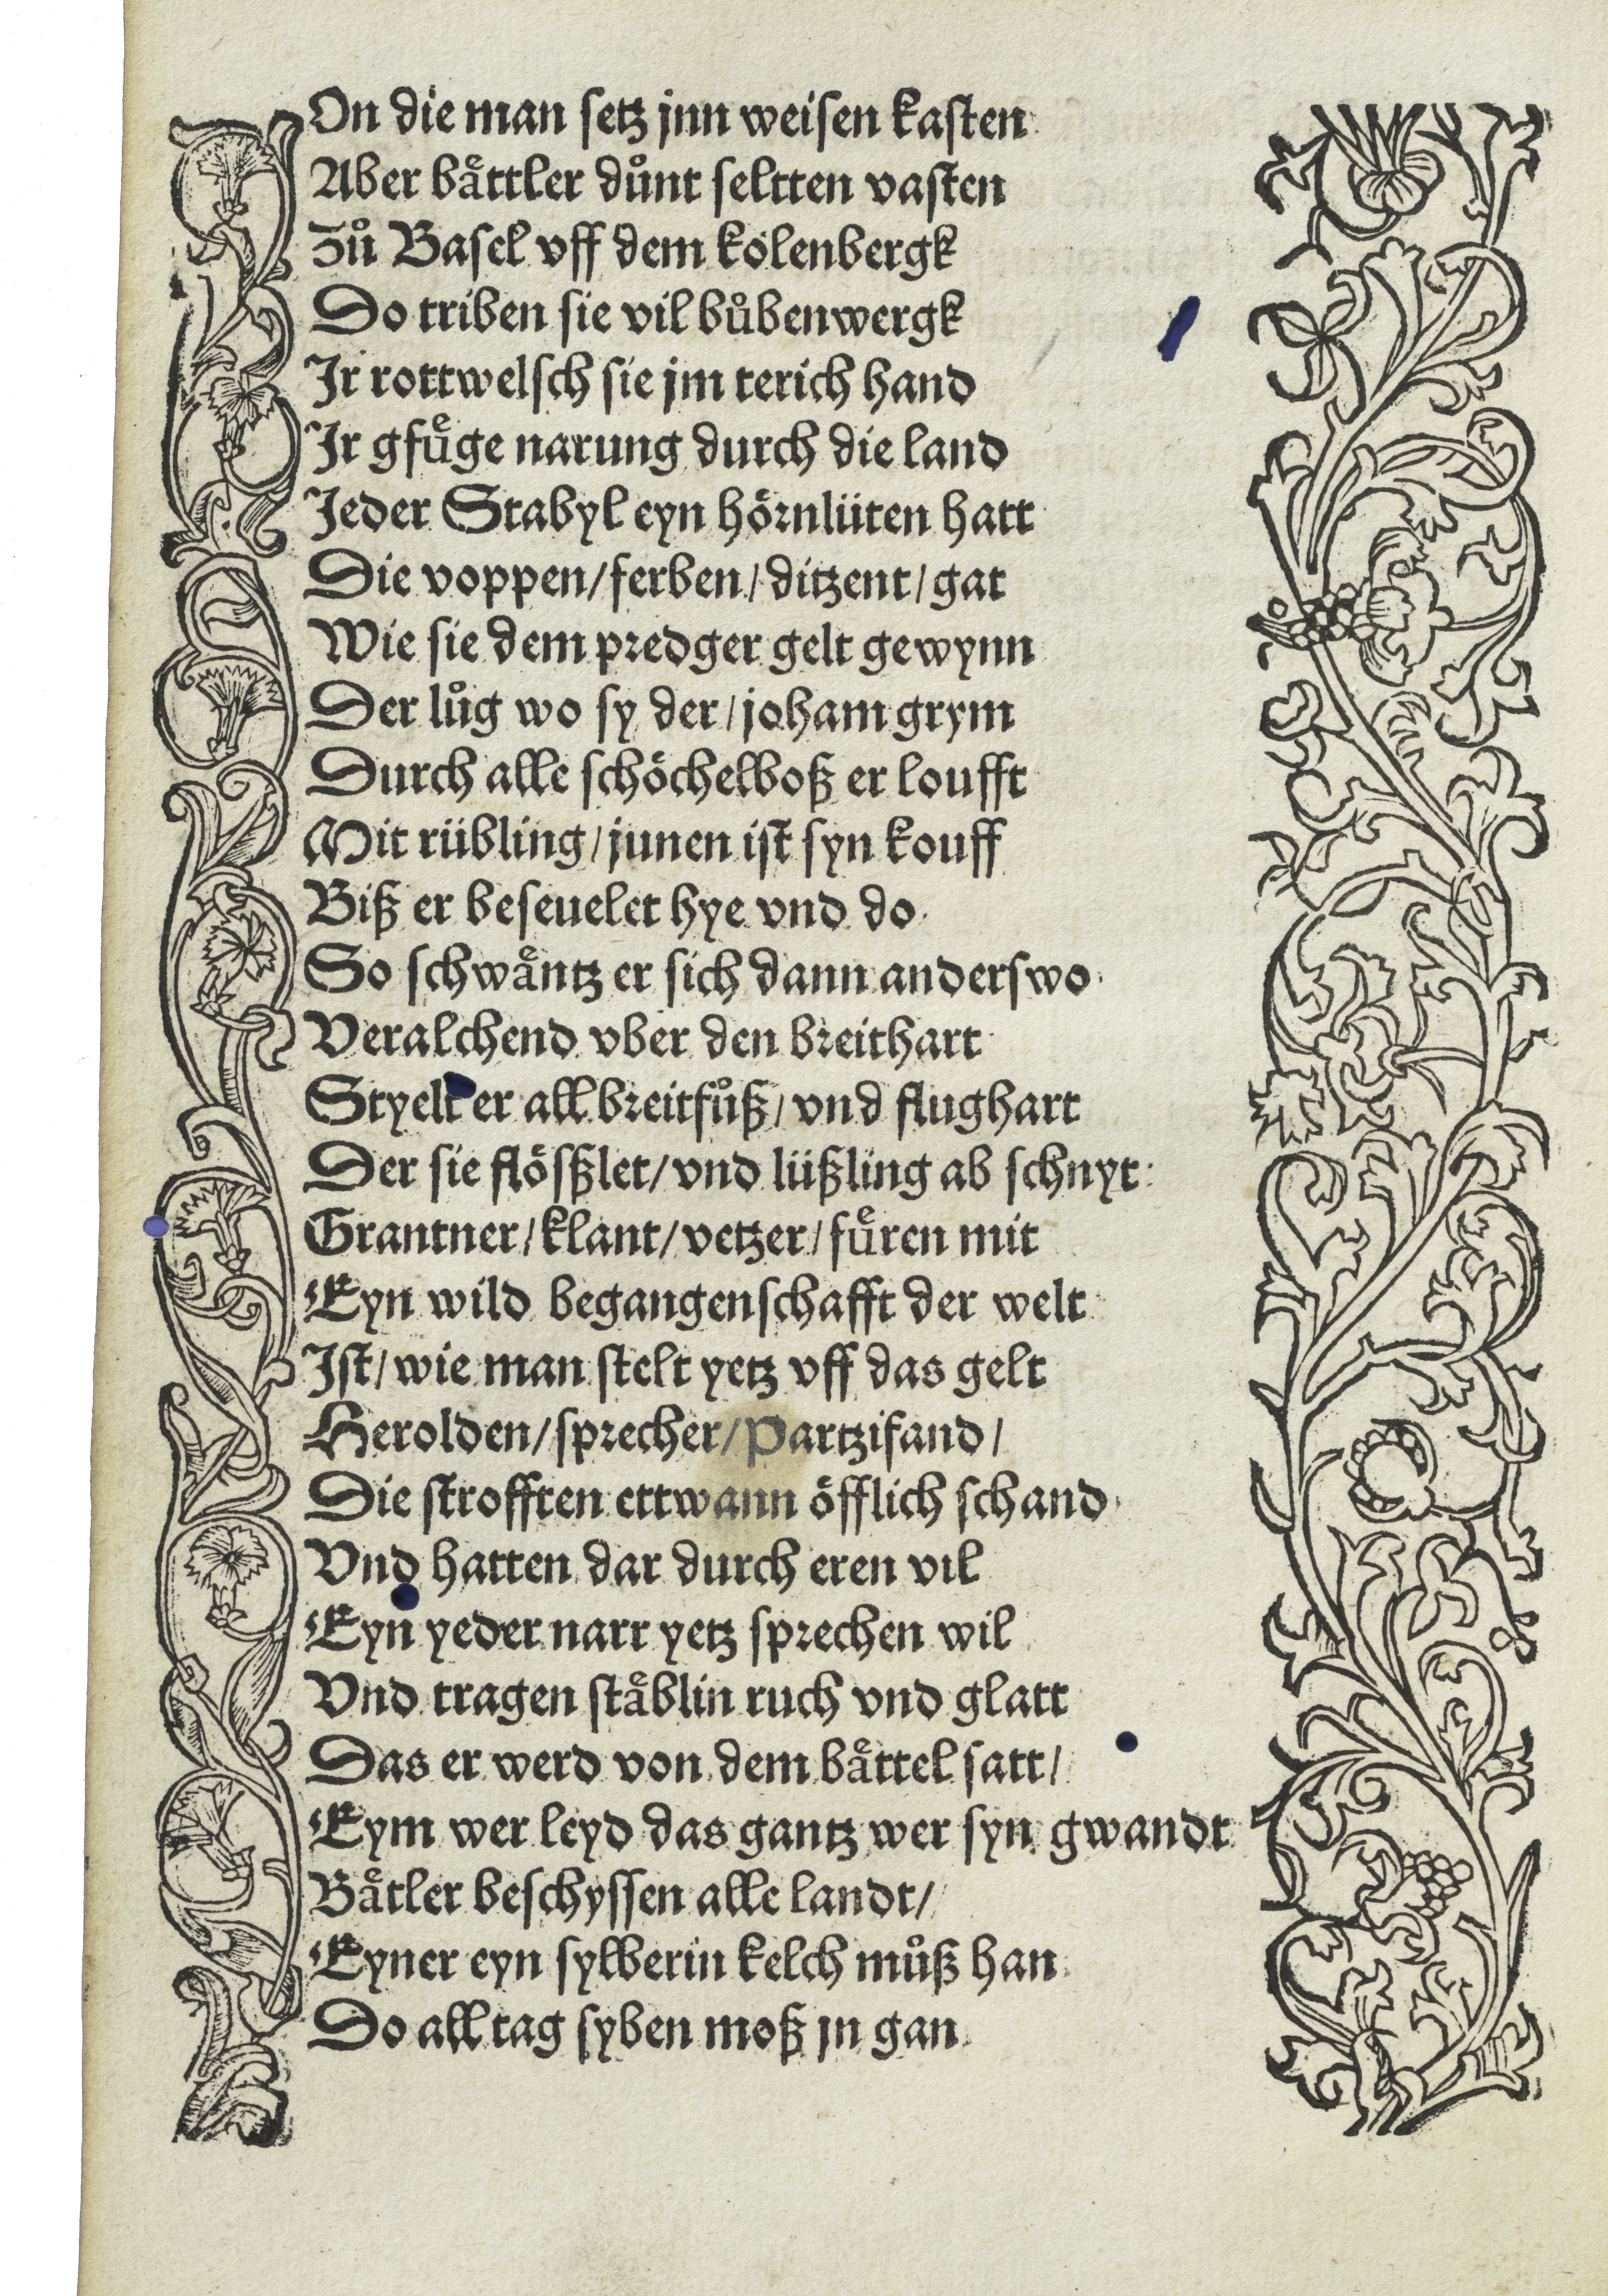 On die man setz jnn weisen kasten
Aber baͤttler duͦnt seltten vasten
Zuͦ Basel vff dem kolenbergk
Do triben sie vil buͦbenwergk
Ir rottwelsch sie jm terich hand
Ir gfuͤge narung durch die land
Jeder Stabyl eyn hörnlüten hatt
Die voppen/ferben/ditzent/gat
Wie sie dem predger gelt gewynn
Der luͦg wo sy der/joham grym
Durch alle schöchelboß er loufft
Mit rübling/junen ist syn kouff
Biß er beseuelet hye vnd do
So schwaͤntz er sich dann anderswo
Veralchend vber den breithart
Styelt er all breitfuͦß/vnd flughart
Der sie flösßlet/vnd lüßling ab schnyt
Grantner/klant/vetzer/fuͤren mit
Eyn wild begangenschafft der welt
Ist/wie man stelt yetz vff das gelt
Herolden/sprecher/Partzifand/
Die strofften ettwann öfflich schand
Vnd hatten dar durch eren vil
Eyn yeder narr yetz sprechen wil
Vnd tragen staͤblin ruch vnd glatt
Das er werd von dem baͤttel satt/
Eym wer leyd das gantz wer syn gwandt
Baͤtler beschyssen alle landt/
Eyner eyn sylberin kelch muͦß han
Do all tag syben moß jn gan